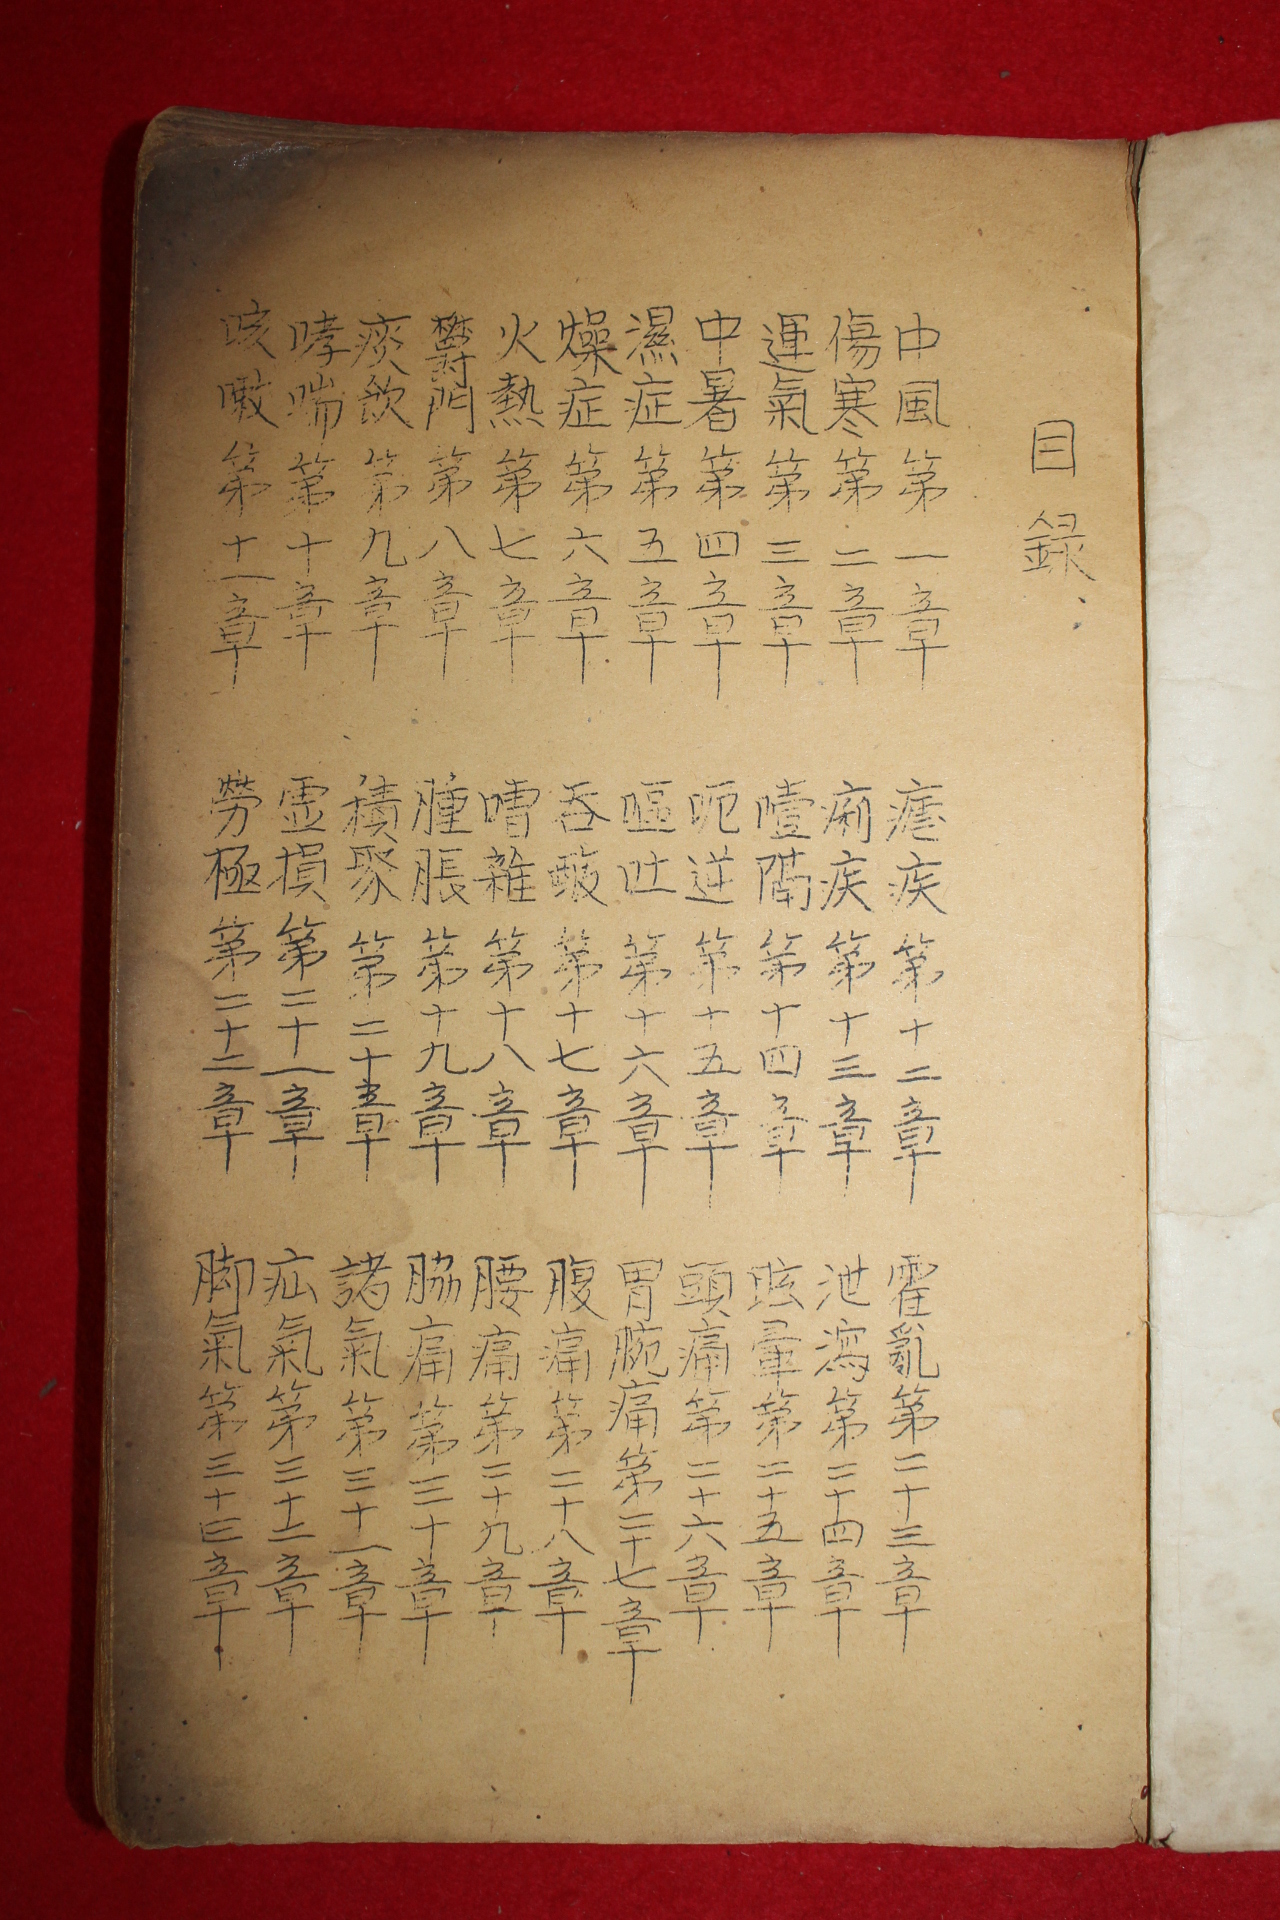 目錄、
中風第一章
傷寒第二章
運氣第三章
中暑第四章
濕症第五章
燥症第六章
火熱第七章
鬱門第八章
痰飲第九章
哮喘第十章
咳嗽第十一章
瘧疾第十二章
痢疾第十三章
噎隔第十四章
呃逆第十五章
嘔吐第十六章
吞酸第十七章
嘈雜第十八章
腫脹第十九章
積聚第二十章
虛損第二十一章
勞極第二十二章
霍亂第二十三章
泄瀉第二十四章
眩暈第二十五章
頭痛第二十六章
胃脘痛第二十七章
腹痛第二十八章
腰痛第二十九章
脇痛第三十章
諸氣第三十一章
疝氣第三十二章
脚氣第三十三章